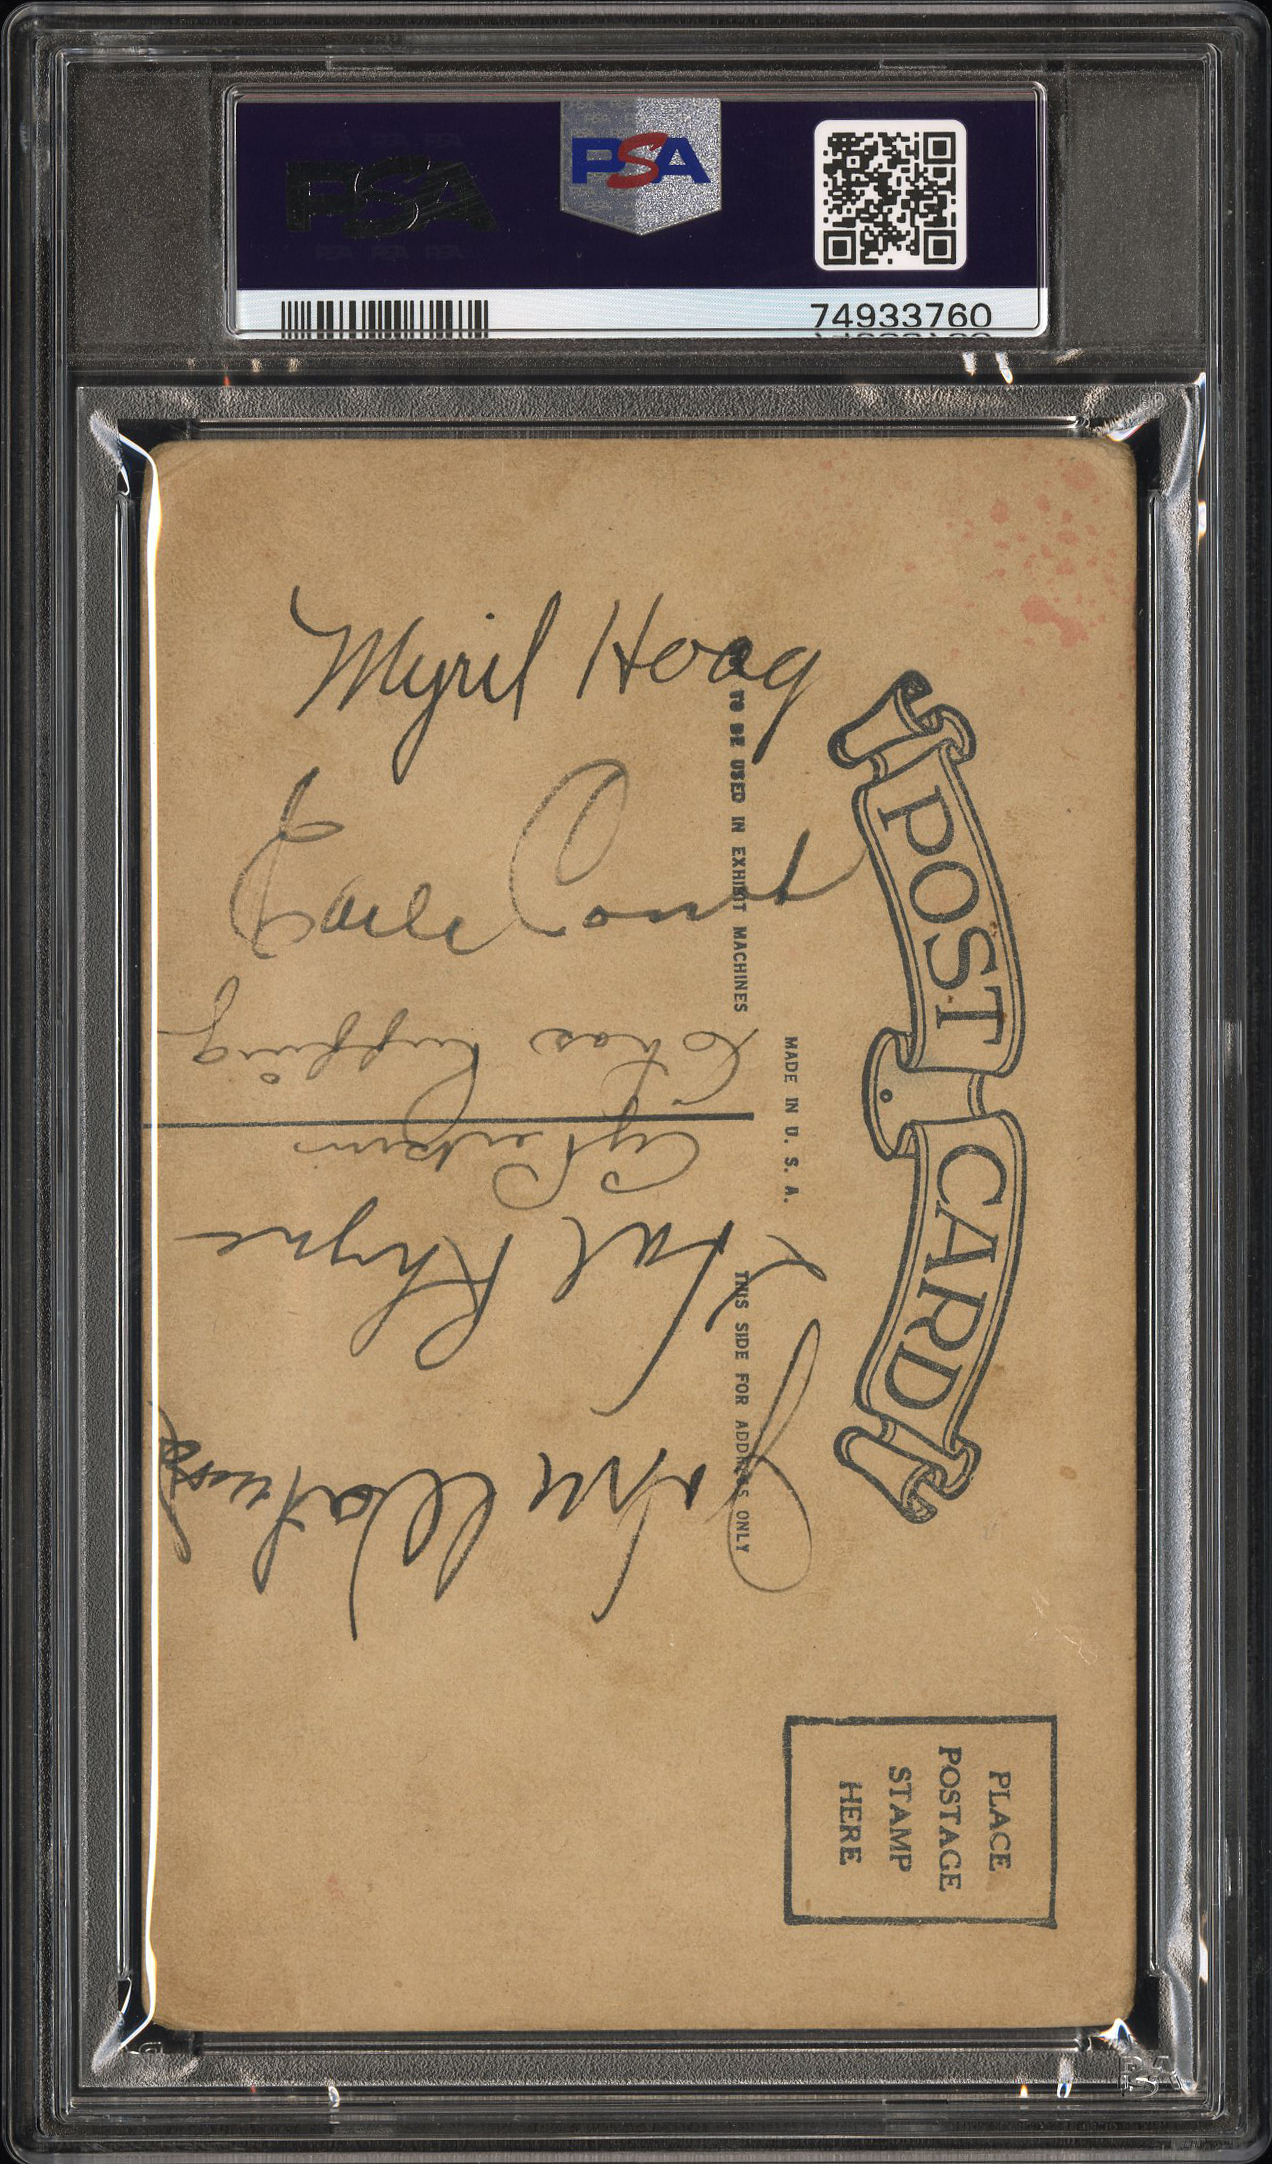 PSA
PSA
74933760
Myril Hoag
Earle Combs
Chas Ruffing
Cy Perkins
Hal Rhyne
John Watwood
TO BE USED IN EXHIBIT MACHINES
MADE IN U. S. A.
THIS SIDE FOR ADDRESS ONLY
POST CARD
PLACE
POSTAGE
STAMP
HERE